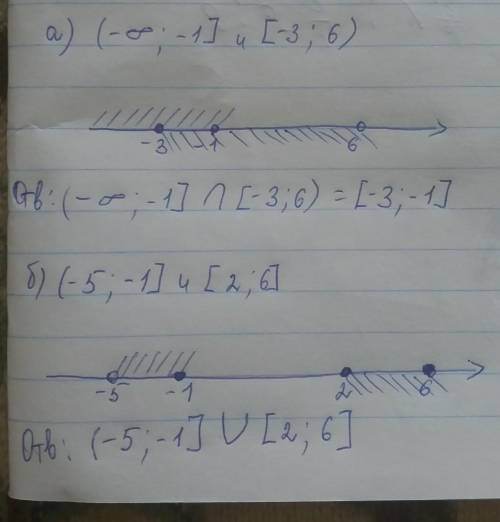 а) (-∞; -1] и [-3; 6)
-3 -1 6
Отв: (-∞; -1] ∩ [-3; 6) = [-3; -1]
б) (-5; -1] и [2; 6]
-5 -1 2 6
Отв: (-5; -1] ∪ [2; 6]